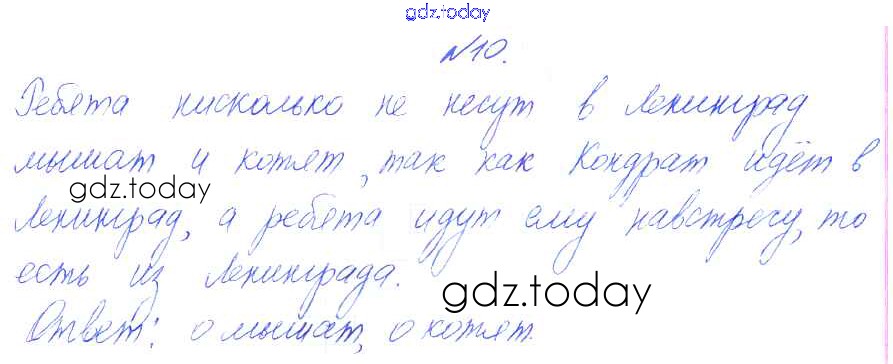 gdz.today
№10.
Ребята нисколько не несут в Ленинград
мышат и котят, так как Кондрат идёт в
gdz.today
Ленинград, а ребята идут ему навстречу, то
есть из Ленинграда.
gdz.today
Ответ: 0 мышат, 0 котят.